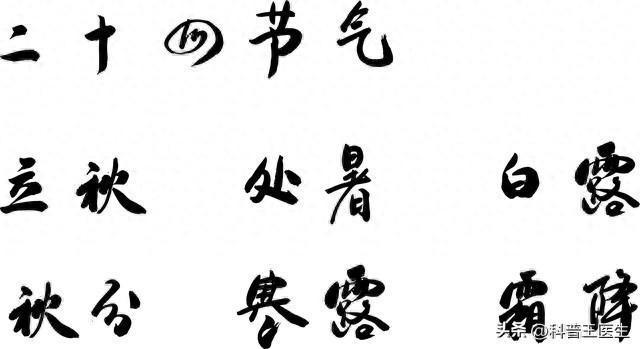 二十四节气
立秋 处暑 白露
秋分 寒露 霜降
头条 @科普王医生